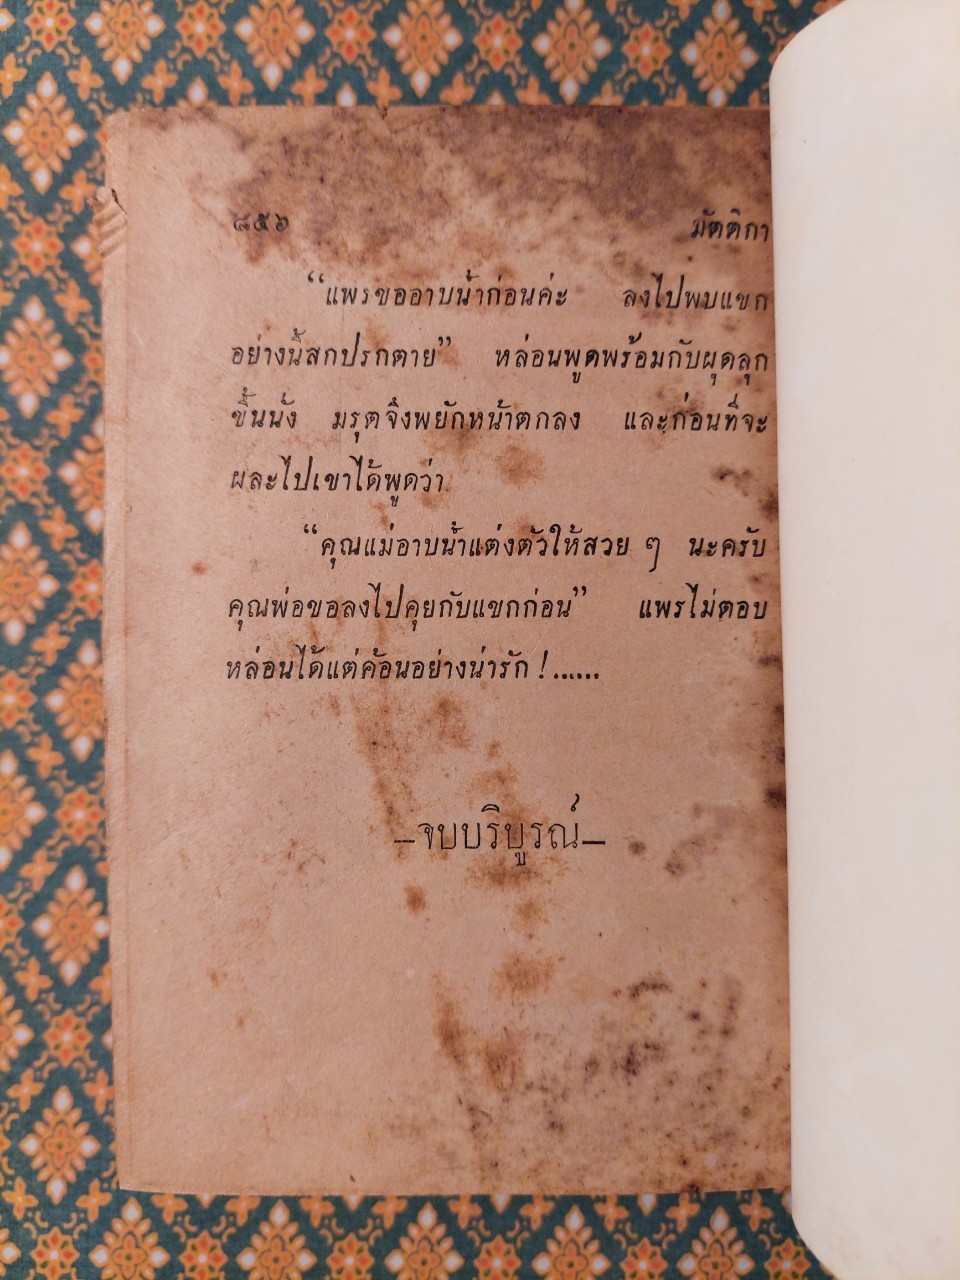 ๘๕๖ มัตติกา
“แพรขออาบน้ำก่อนค่ะ ลงไปพบแขก
อย่างนี้สกปรกตาย” หล่อนพูดพร้อมกับผุดลุก
ขึ้นนั่ง มรุตจึงพยักหน้าตกลง และก่อนที่จะ
ผละไปเขาได้พูดว่า
“คุณแม่อาบน้ำแต่งตัวให้สวย ๆ นะครับ
คุณพ่อขอลงไปคุยกับแขกก่อน” แพรไม่ตอบ
หล่อนได้แต่ค้อนอย่างน่ารัก !......
—จบบริบูรณ์—